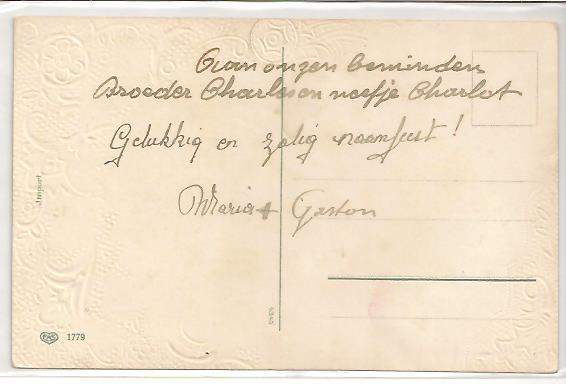 Aan onzen beminden
Broeder Charles en neefje Charlot
Gelukkig en zalig naamfeest!
Maria + Gaston
Import
4343
EAS 1779